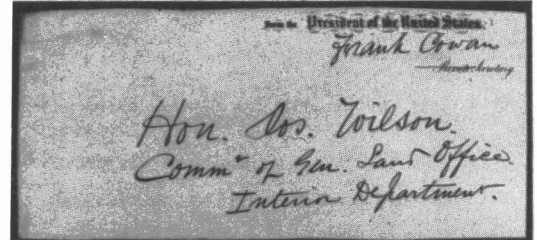 From the President of the United States.
Frank Cowan
Hon. Jos. Wilson.
Commr of Gen. Land Office.
Interior Department.